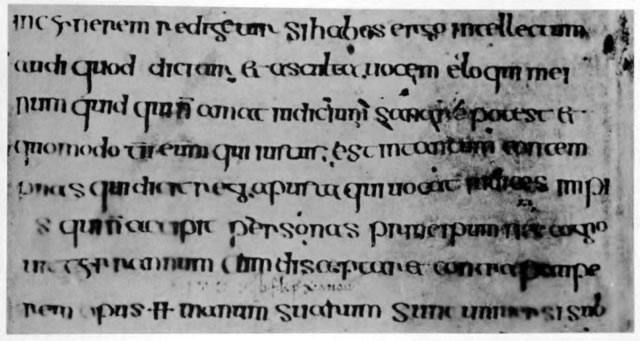 in cinerem redigetur si habes ergo intellectum
audi quod dicitur & asculta uocem eloquii mei
num quid qui ñ amat iudicium sanari potest &
quomodo tu eum qui iustus est in tantum condem
pnas qui dicit regi apustata qui uocat impio
s qui ñ accipit personas principum nec cogno
uit tirannum cum disceptaret contra paupe
rem opus manuum suarum sunt